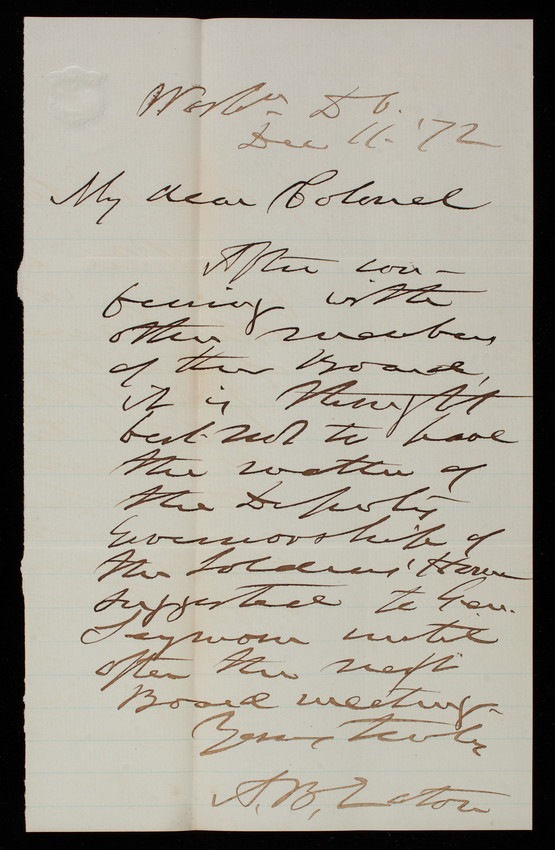 Washn D.C.
Dec 11. '72
My dear Colonel
After con-
ferring with
other members
of the Board,
it is thought
best not to have
the matter of
the Deputy
Governorship of
the Soldiers' Home
suggested to Gen.
Seymour until
after the next
Board meeting.
Yours truly
A. B. Eaton